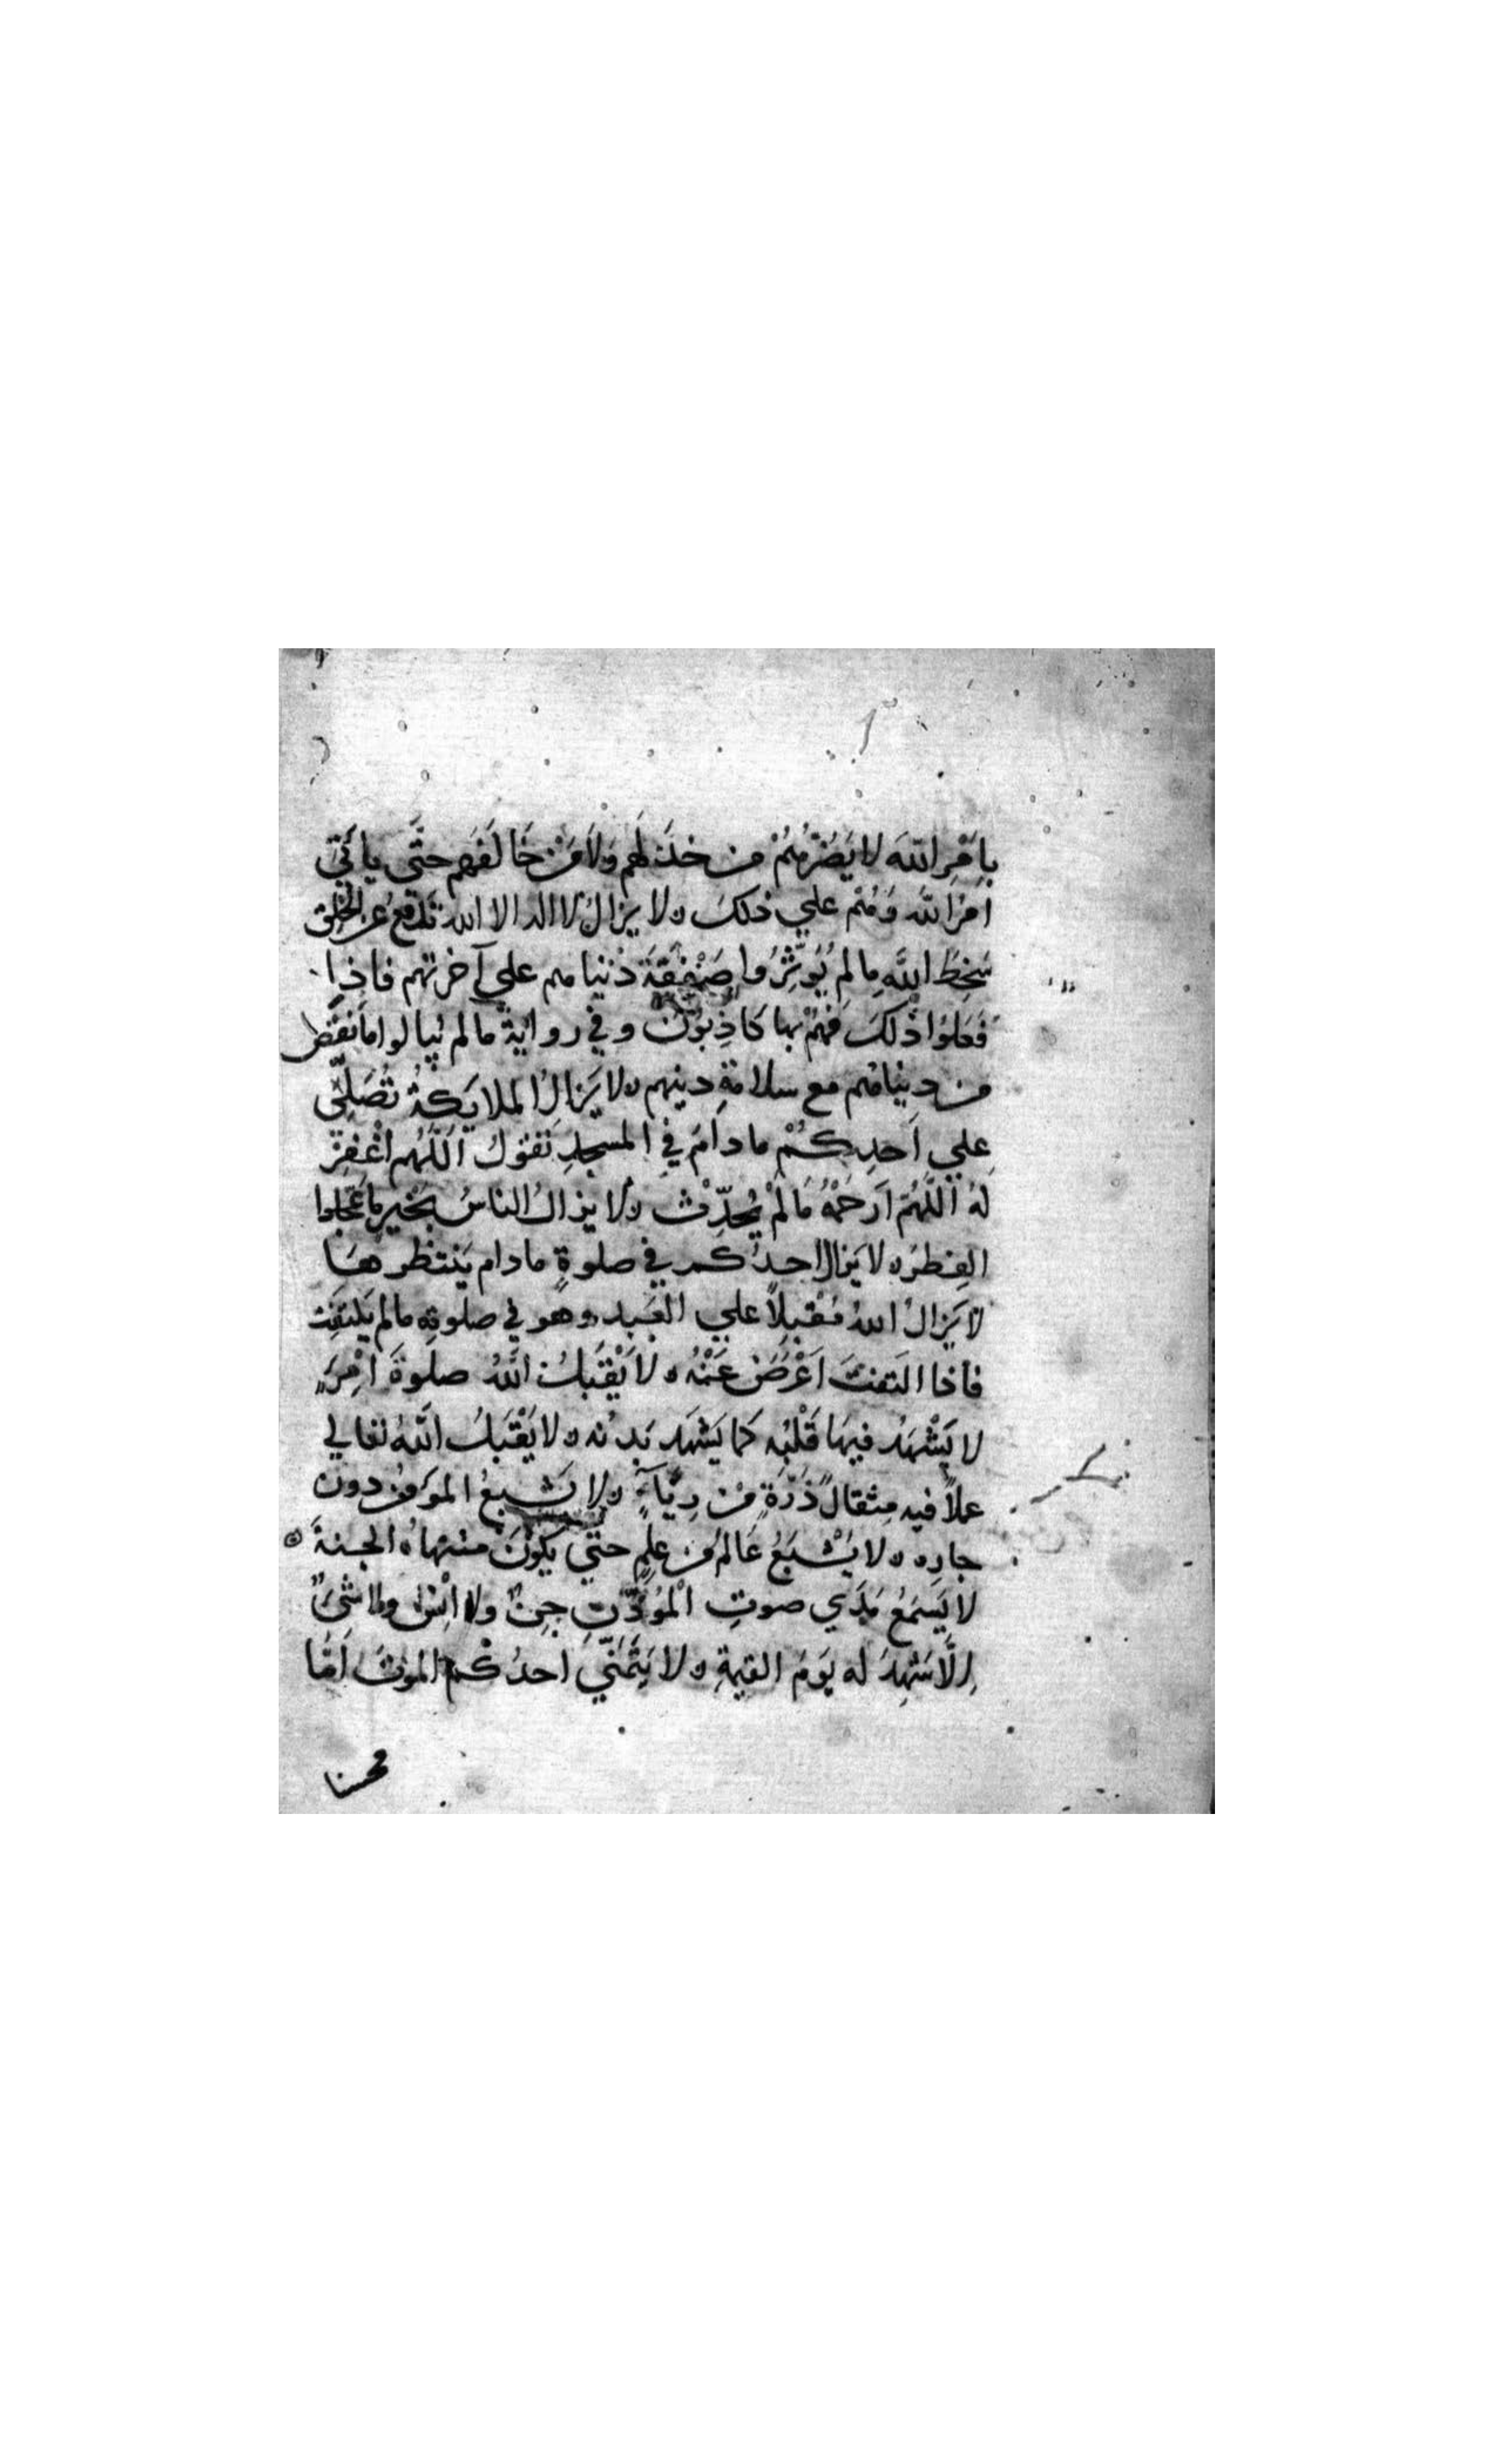 بِاَمْرِ اللّهَ لا يَضُرُّهُمْ من خذلَهم وَلَا مَنْ خَالَفَهم حتَّى يأتَي
امرُ اللّه وَهُم علي ذلكَ ه لا يزالُ لا اله الا الله تَدْفعُ عن الخلق
سَخِطَ اللَّهِ مالم يُوَثِّرُوا صَفْقَةَ دُنْيا هم علي آخرتهم فاذِا
فَعَلوُا ذَلكَ فَهُمْ بها كَاذِبوُنَ وفي روايَةٍ مالم يُبالوا ما نَقَصَ
من دنياهُم مع سلامَةِ دينهم ه لا يَزالُ الملايَكةُ تُصَلِّي
عِلي اَحدِكُمْ مادامَ فِي المسجدِ تَقوُلُ اَللَّهُم اغْفِرْ
لهُ اللَّهُمَّ ارَحَمْهُ مَالمْ يُحدِّثْ ه لا يزالُ الناسُ بخَيرٍ ما عَجَلوا
الفِطرَ ه لا يَزالُ احدُكم في صلوةٍ مادام يَنتظرهَا
لا يَزالُ اللهُ مُقْبِلاً علي العَبد وهو في صلوتِه مالم يَلتفِت
فاذا التَفتَ اَعْرَضَ عَنْهُ ه لا يَقْبَلُ اللَّهُ صلوةَ امْرِءٍ
لا يَشْهَدُ فيهَا قَلْبُه كما يَشهَد بَدنُه ه لا يَقْبَلُ اللَّهُ تعالي
عملاً فيه مِثقالُ ذَرّةٍ مْن رِيَآءٍ ه لا يَشبعُ المؤمنُ دونَ
جارِه ه لا يَشْبَعُ عَالمٌ من علمٍ حتَّي يَكوُنَ منتهاهُ الجنةَ ه
لا يَسَمعُ مَدَي صوتِ الْمُؤذّنِ جِنٌ ولا اِنْسٌ ولا شيْءٌ
اِلَّا شَهِدَ له يَومَ القيمةِ ه لا يَتَمَنّيَ احدُكُم الموتَ اِمَّا
محسنا